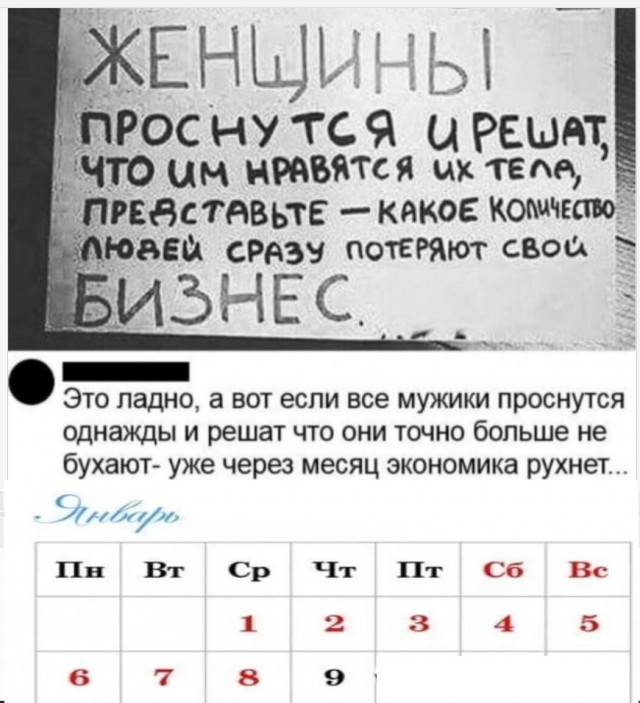 ЖЕНЩИНЫ
ПРОСНУТСЯ И РЕШАТ,
ЧТО ИМ НРАВЯТСЯ ИХ ТЕЛА,
ПРЕДСТАВЬТЕ – КАКОЕ КОЛИЧЕСТВО
ЛЮДЕЙ СРАЗУ ПОТЕРЯЮТ СВОЙ
БИЗНЕС.
Это ладно, а вот если все мужики проснутся
однажды и решат что они точно больше не
бухают- уже через месяц экономика рухнет...
Январь
Пн Вт Ср Чт Пт Сб Вс
1 2 3 4 5
6 7 8 9